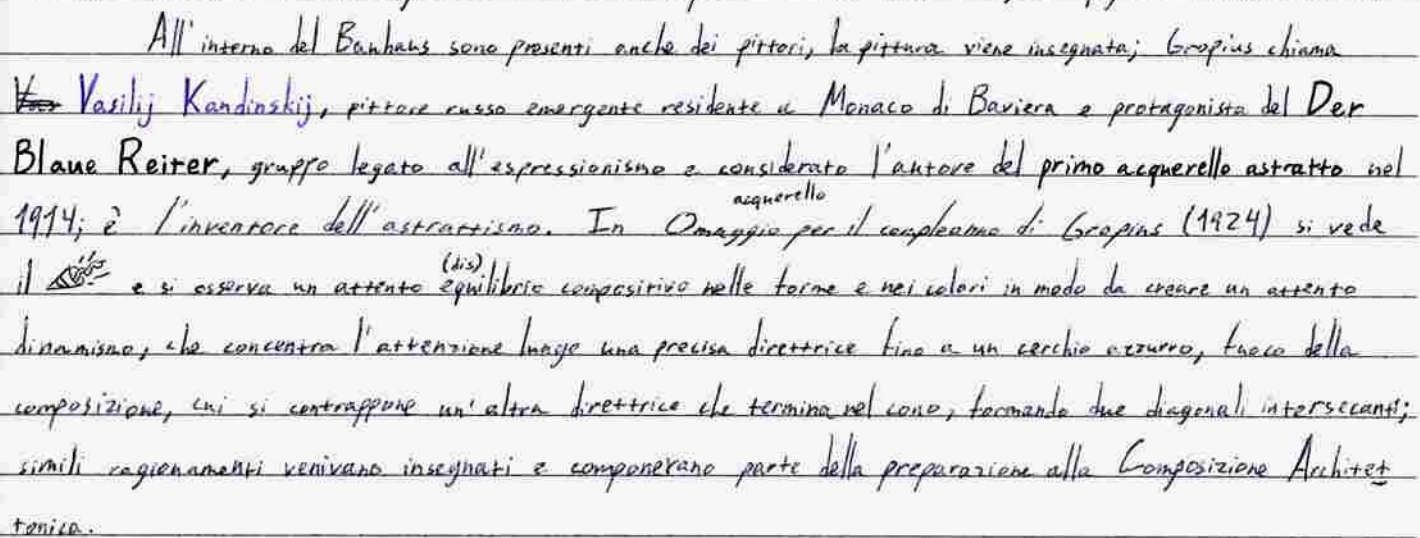 All'interno del Bauhaus sono presenti anche dei pittori, la pittura viene insegnata; Gropius chiama
Vasilij Kandinskij, pittore russo emergente residente a Monaco di Baviera e protagonista del Der
Blaue Reiter, gruppo legato all'espressionismo e considerato l'autore del primo acquerello astratto nel
1914; è l'inventore dell'astrattismo. In acquerello Omaggio per il compleanno di Gropius (1924) si vede
il e si osserva un attento (dis)equilibrio compositivo nelle forme e nei colori in modo da creare un attento
dinamismo, che concentra l'attenzione lungo una precisa direttrice fino a un cerchio azzurro, fuoco della
composizione, cui si contrappone un'altra direttrice che termina nel cono, formando due diagonali intersecanti;
simili ragionamenti venivano insegnati e componevano parte della preparazione alla Composizione Architet
tonica.